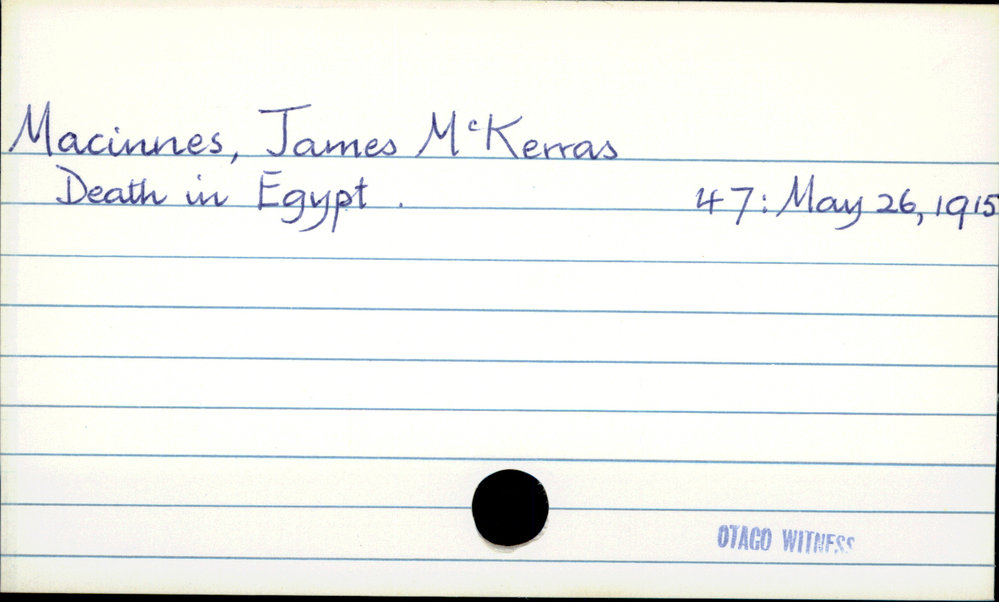 Macinnes, James McKerras
Death in Egypt. 47: May 26, 1915
OTAGO WITNESS